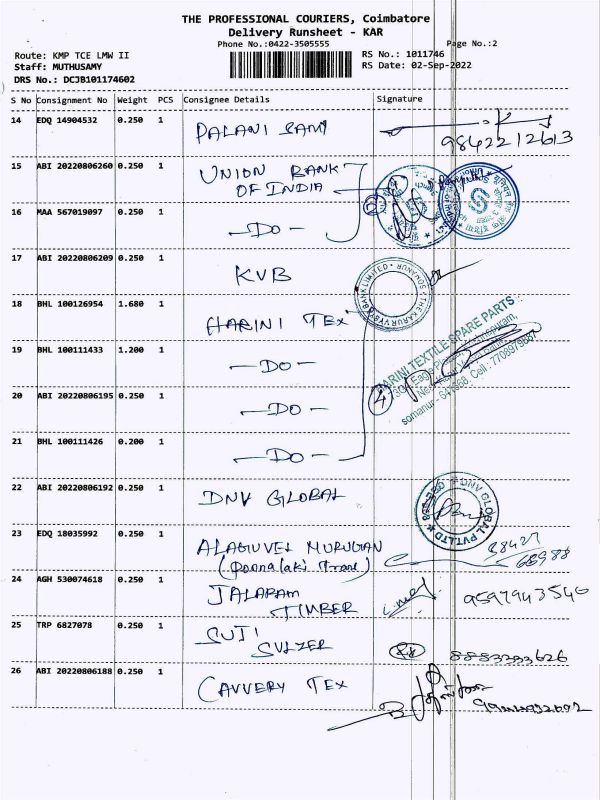 THE PROFESSIONAL COURIERS, Coimbatore
Delivery Runsheet - KAR
Phone No.:0422-3505555
Page No.:2
Route: KMP TCE LMW II
RS No.: 1011746
Staff: MUTHUSAMY
RS Date: 02-Sep-2022
DRS No.: DCJB101174602
S No Consignment No Weight PCS Consignee Details Signature
14 EDQ 14904532 0.250 1 PALANI SAMY
9842212613
15 ABI 20220806260 0.250 1 UNION BANK
OF INDIA
16 MAA 567019097 0.250 1 -DO-
17 ABI 20220806209 0.250 1 KVB
THE KARUR VYSYA BANK LIMITED * SOMANUR *
18 BHL 100126954 1.680 1 HARINI TEX
HARINI TEXTILE SPARE PARTS
somanur - 641668, Cell : 7708979887
19 BHL 100111433 1.200 1 -DO-
20 ABI 20220806195 0.250 1 -DO-
4
21 BHL 100111426 0.200 1 -DO-
22 ABI 20220806192 0.250 1 DNV GLOBAL
DNV GLOBAL PVT LTD
23 EDQ 18035992 0.250 1 ALAGUVEL MURUGAN
(Poonalaki Trans)
24 AGH 530074618 0.250 1 JALARAM
TIMBER
9597943540
25 TRP 6827078 0.250 1 SUJI
SULZER
8883393626
26 ABI 20220806188 0.250 1 CAVVERY TEX